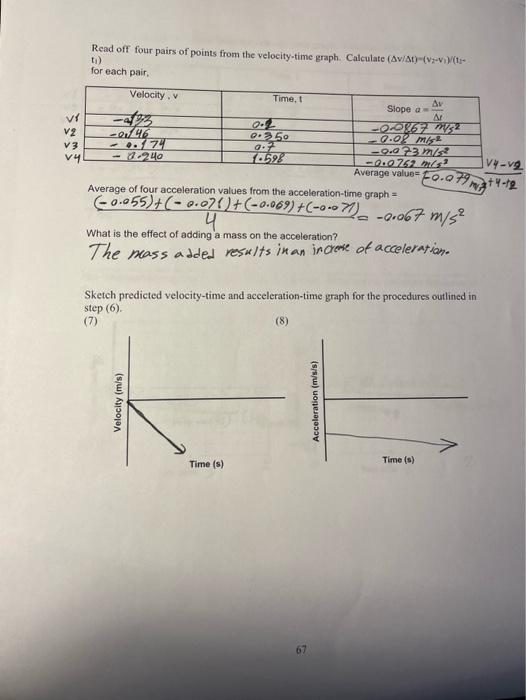 Read off four pairs of points from the velocity-time graph. Calculate (Δv/Δt)=(v₂-v₁)/(t₂-
t₁)
for each pair.
Velocity, v Time, t Slope a = Δv/Δt
v1 0.2 -0.0867 m/s²
v2 -0.146 0.350 -0.08 m/s²
v3 -0.174 0.7 -0.073 m/s²
v4 -0.240 1.598 -0.0752 m/s²
Average value= -0.079 m/s²
Average of four acceleration values from the acceleration-time graph =
(-0.055)+(-0.071)+(-0.069)+(-0.071)/4 = -0.067 m/s²
What is the effect of adding a mass on the acceleration?
The mass added results in an increase of acceleration.
Sketch predicted velocity-time and acceleration-time graph for the procedures outlined in
step (6).
(7) (8)
Velocity (m/s)
Time (s)
Acceleration (m/s/s)
Time (s)
67